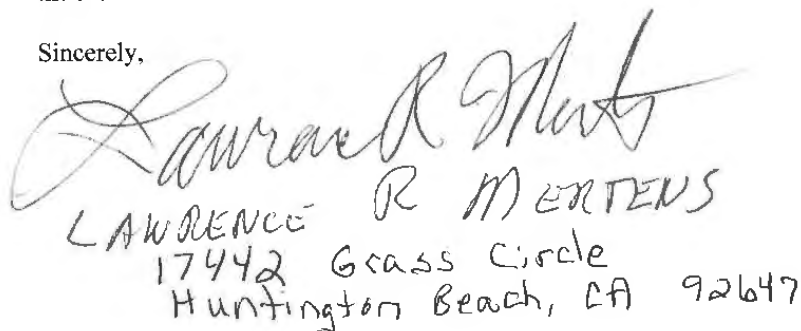 Sincerely,
Lawrence R Mertens
LAWRENCE R MERTENS
17442 Grass Circle
Huntington Beach, CA 92647